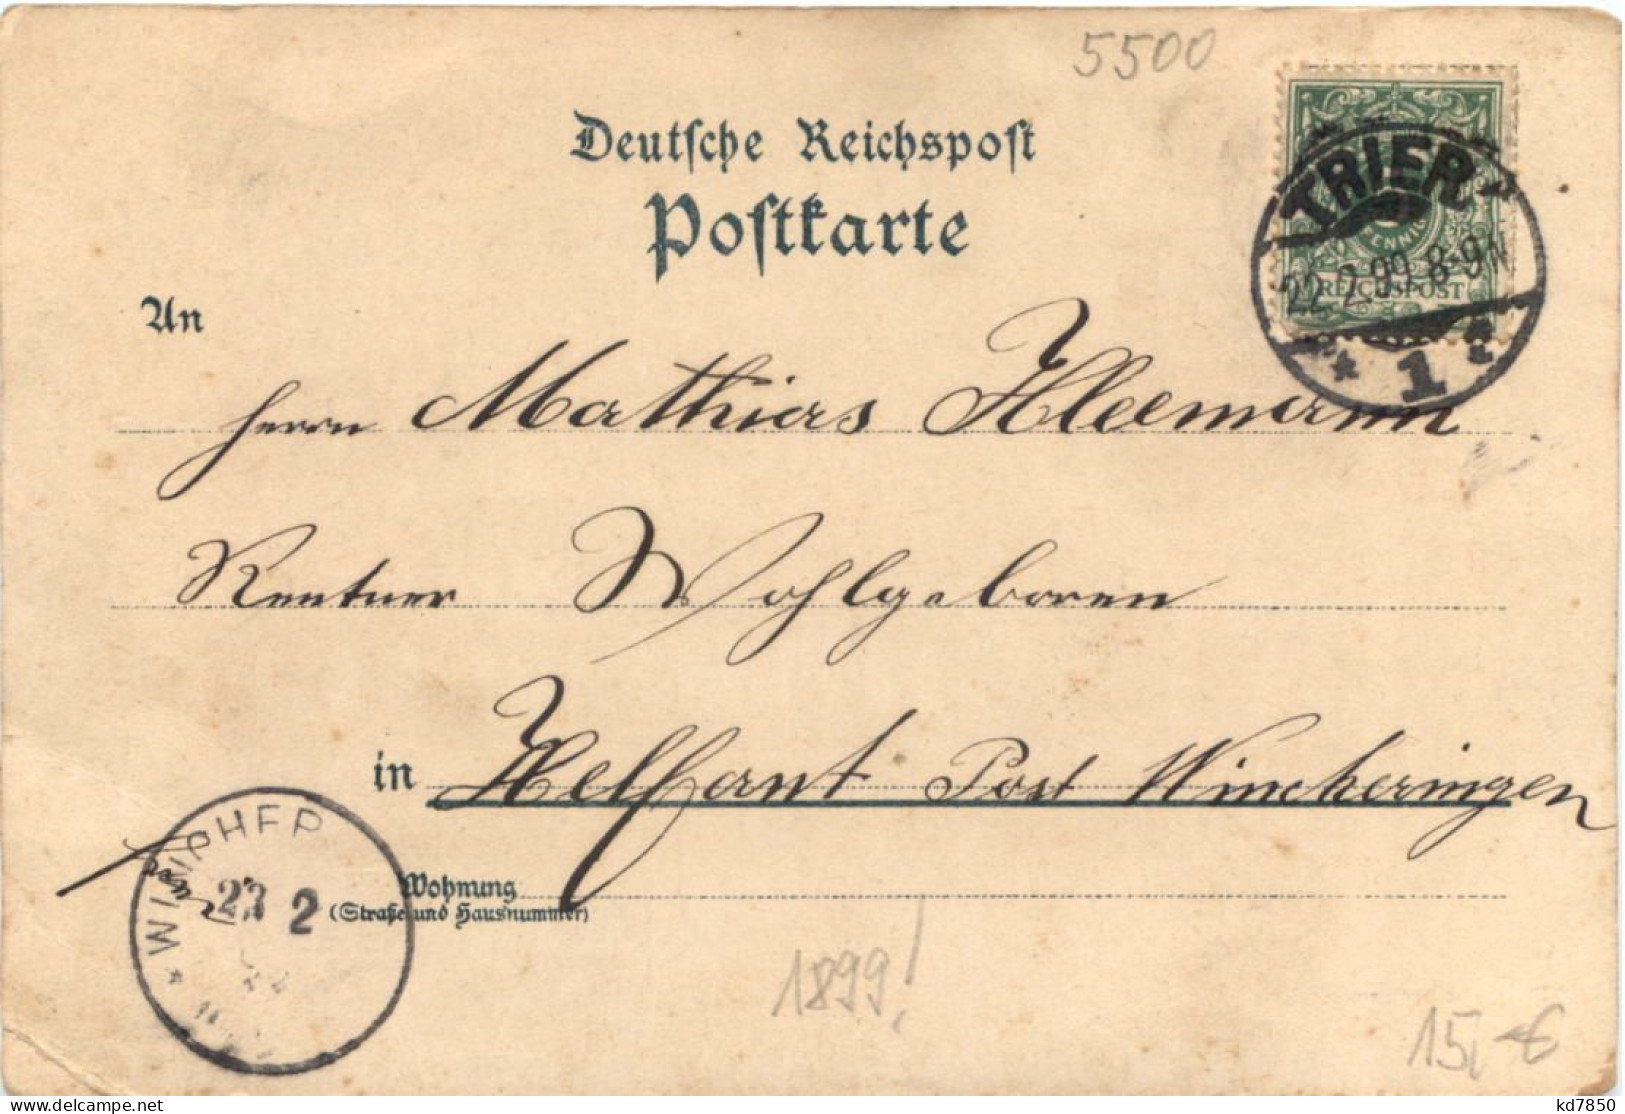 5500
Deutsche Reichspost
Postkarte
TRIER
22.2.99. 8-9N
* 1 *
PFENNIG
REICHSPOST
An
Herrn Mathias Kleemann
Rentner Wohlgeboren
in Helfant Post Wincheringen
Wohnung
(Straße und Hausnummer)
* WINCHER
23 2
1899!
15,-€
kd7850